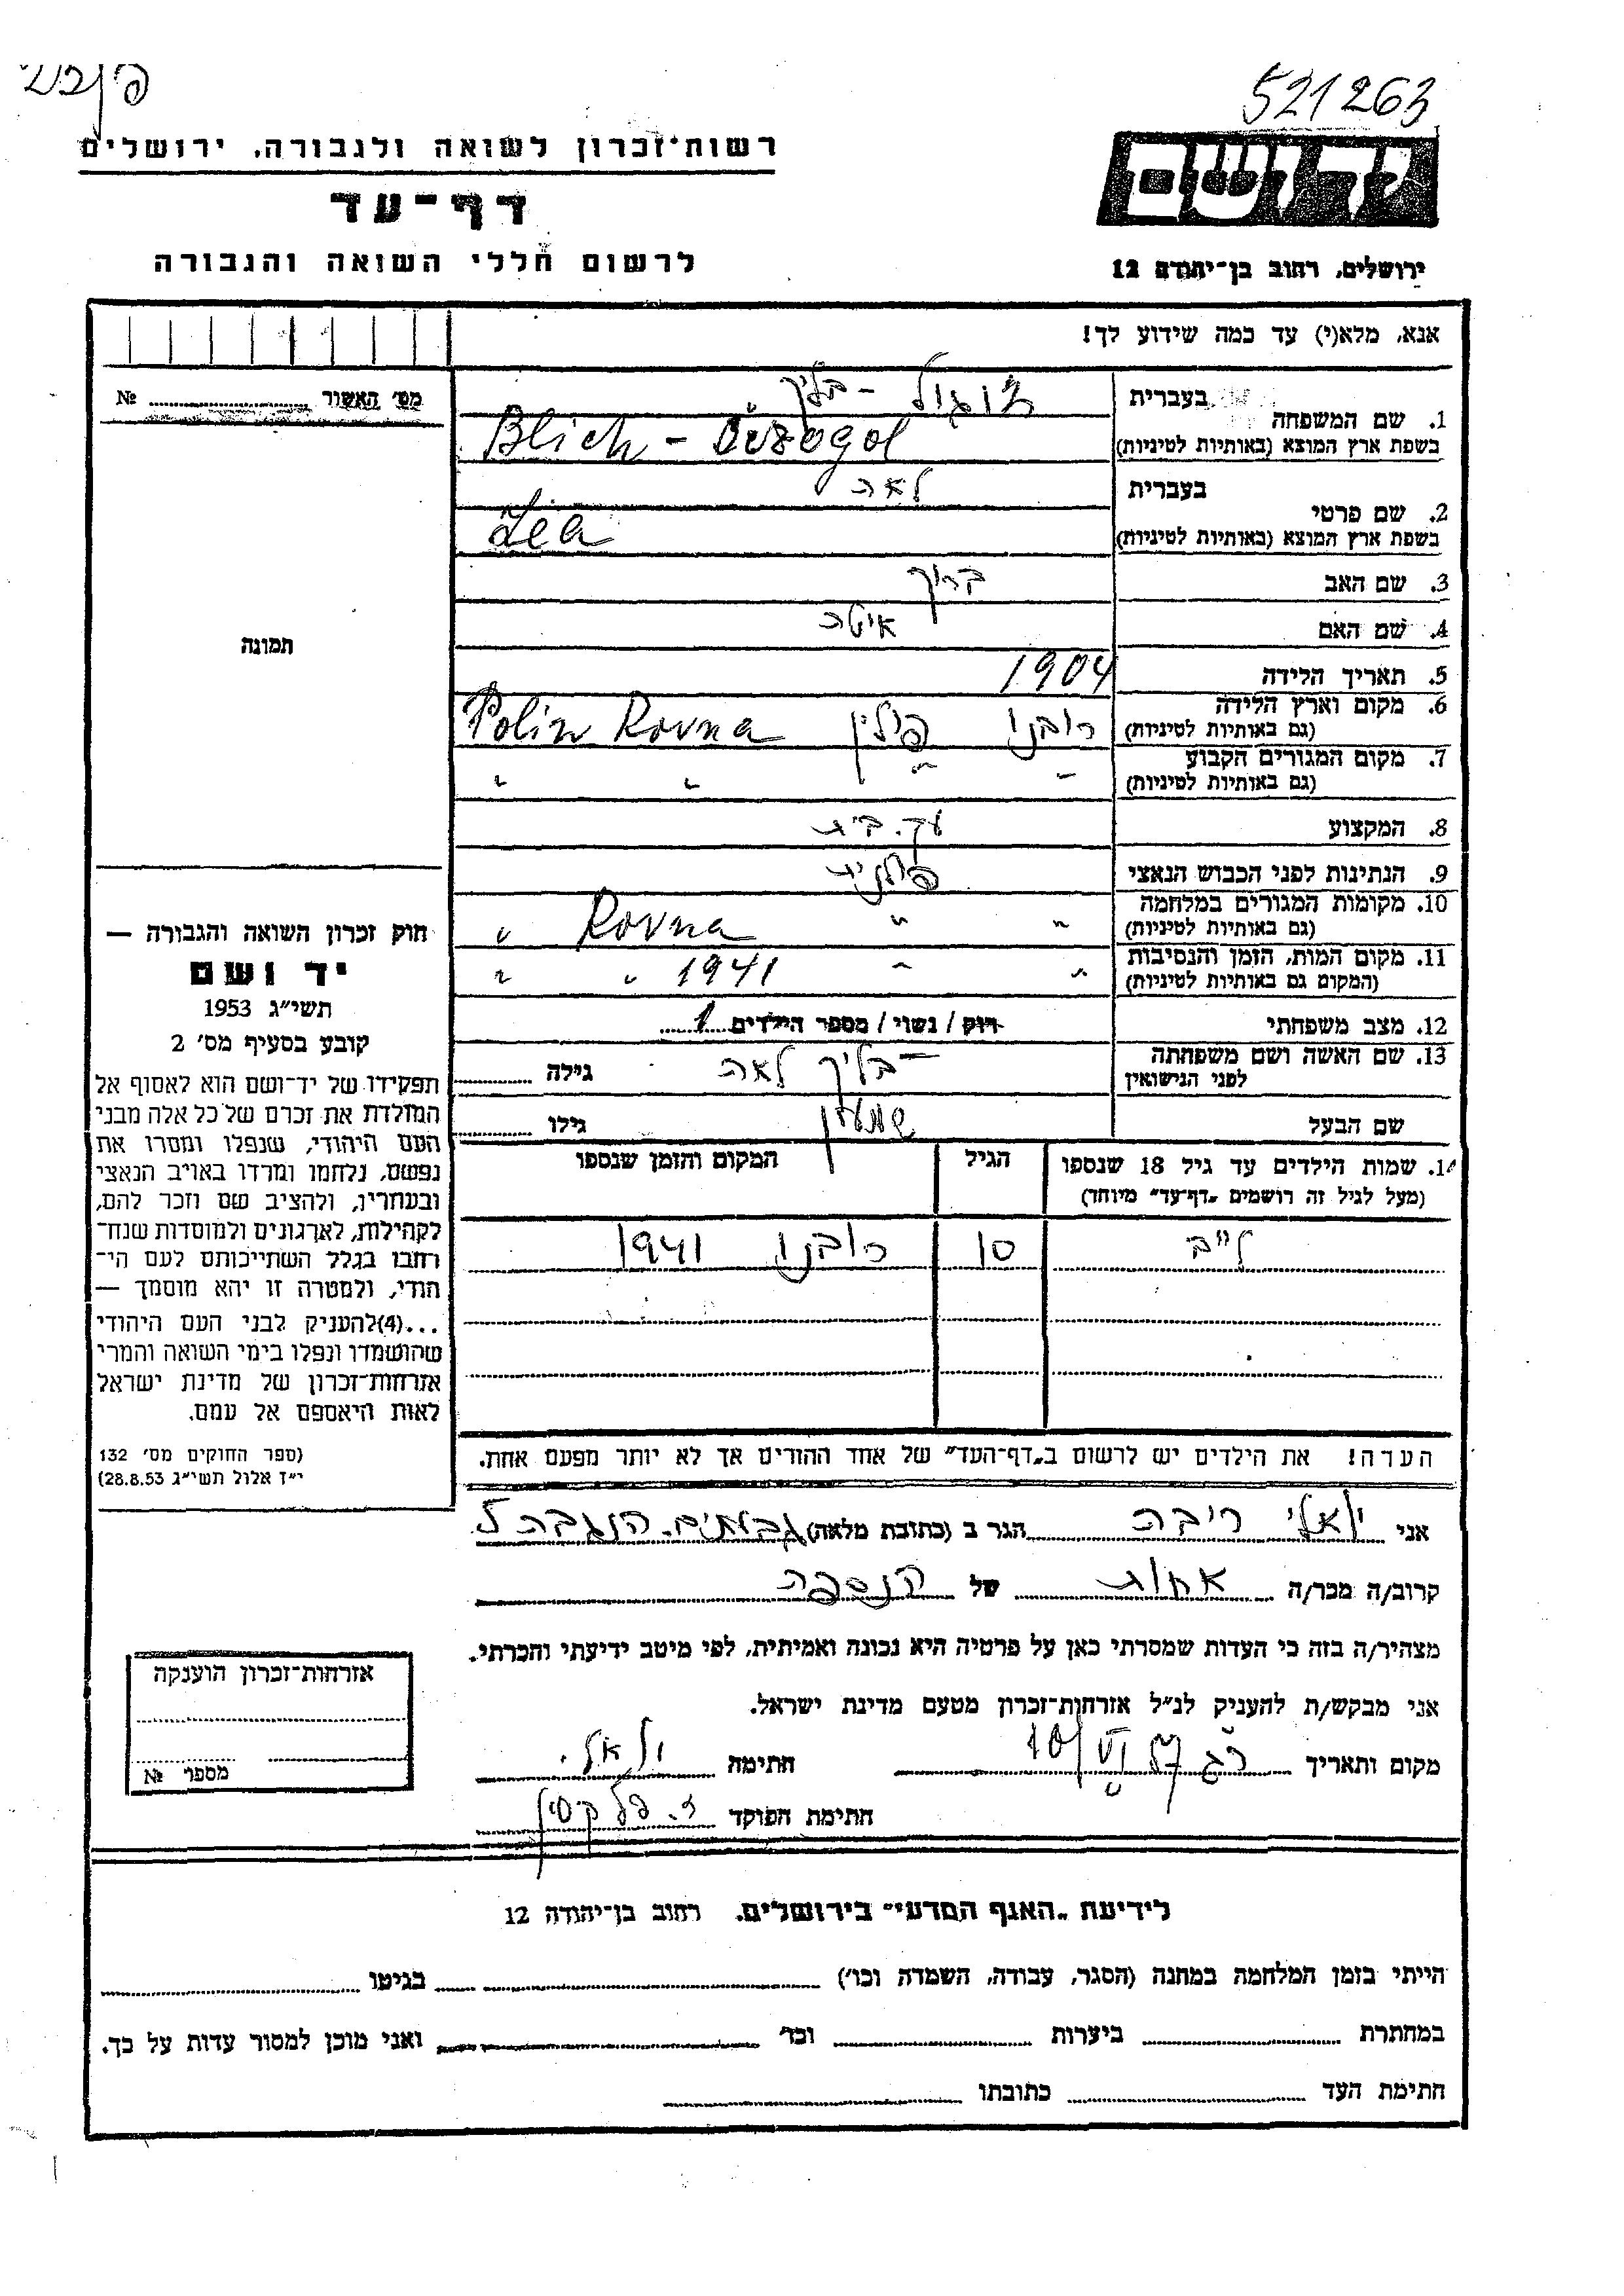 521263
רשות־זכרון לשואה ולגבורה, ירושלים
דף־עד
לרשום חללי השואה והגבורה
יד ושם
ירושלים, רחוב בן־יהודה 12
אנא, מלא(י) עד כמה שידוע לך!
מס׳ האשור № 
1. שם המשפחה
בעברית בליך -
בשפת ארץ המוצא (באותיות לטיניות) Blich -
2. שם פרטי
בעברית לאה
בשפת ארץ המוצא (באותיות לטיניות) Lea
3. שם האב ברוך
4. שם האם איטה
5. תאריך הלידה 1904
6. מקום וארץ הלידה רובנו פולין Polin Rovna
(גם באותיות לטיניות)
7. מקום המגורים הקבוע " " " "
(גם באותיות לטיניות)
8. המקצוע עק. בית
9. הנתינות לפני הכבוש הנאצי פולנית
10. מקומות המגורים במלחמה " " Rovna "
(גם באותיות לטיניות)
11. מקום המות, הזמן והנסיבות " " 1941 " "
(המקום גם באותיות לטיניות)
12. מצב משפחתי רוק / נשוי / מספר הילדים 1
13. שם האשה ושם משפחתה בליך לאה גילה
לפני הנישואין
שם הבעל שמעון גילו
14. שמות הילדים עד גיל 18 שנספו הגיל המקום והזמן שנספו
(מעל לגיל זה רושמים „דף־עד״ מיוחד)
לייב 10 רובנו 1941
הערה! את הילדים יש לרשום ב„דף־העד״ של אחד ההורים אך לא יותר מפעם אחת.
תמונה
חוק זכרון השואה והגבורה —
יד ושם
תשי״ג 1953
קובע בסעיף מס׳ 2
תפקידו של יד־ושם הוא לאסוף אל
המולדת את זכרם של כל אלה מבני
העם היהודי, שנפלו ומסרו את
נפשם, נלחמו ומרדו באויב הנאצי
ובעוזריו, ולהציב שם וזכר להם,
לקהילות, לארגונים ולמוסדות שנח־
רבו בגלל השתייכותם לעם הי־
הודי, ולמטרה זו יהא מוסמך —
...(4)להעניק לבני העם היהודי
שהושמדו ונפלו בימי השואה והמרי
אזרחות־זכרון של מדינת ישראל
לאות היאספם אל עמם.
(ספר החוקים מס׳ 132
י״ז אלול תשי״ג 28.8.53)
אני ריבה הגר ב (כתובת מלאה) גבעתיים.
קרוב/ה מכר/ה אחות של הנספה
מצהיר/ה בזה כי העדות שמסרתי כאן על פרטיה היא נכונה ואמיתית, לפי מיטב ידיעתי והכרתי.
אני מבקש/ת להעניק לנ״ל אזרחות־זכרון מטעם מדינת ישראל.
מקום ותאריך חתימה
חתימת הפוקד
אזרחות־זכרון הוענקה
מספר №
לידיעת „האגף המדעי״ בירושלים. רחוב בן־יהודה 12
הייתי בזמן המלחמה במחנה (הסגר, עבודה, השמדה וכו׳) בגיטו
במחתרת ביערות וכד׳ ואני מוכן למסור עדות על כך.
חתימת העד כתובתו